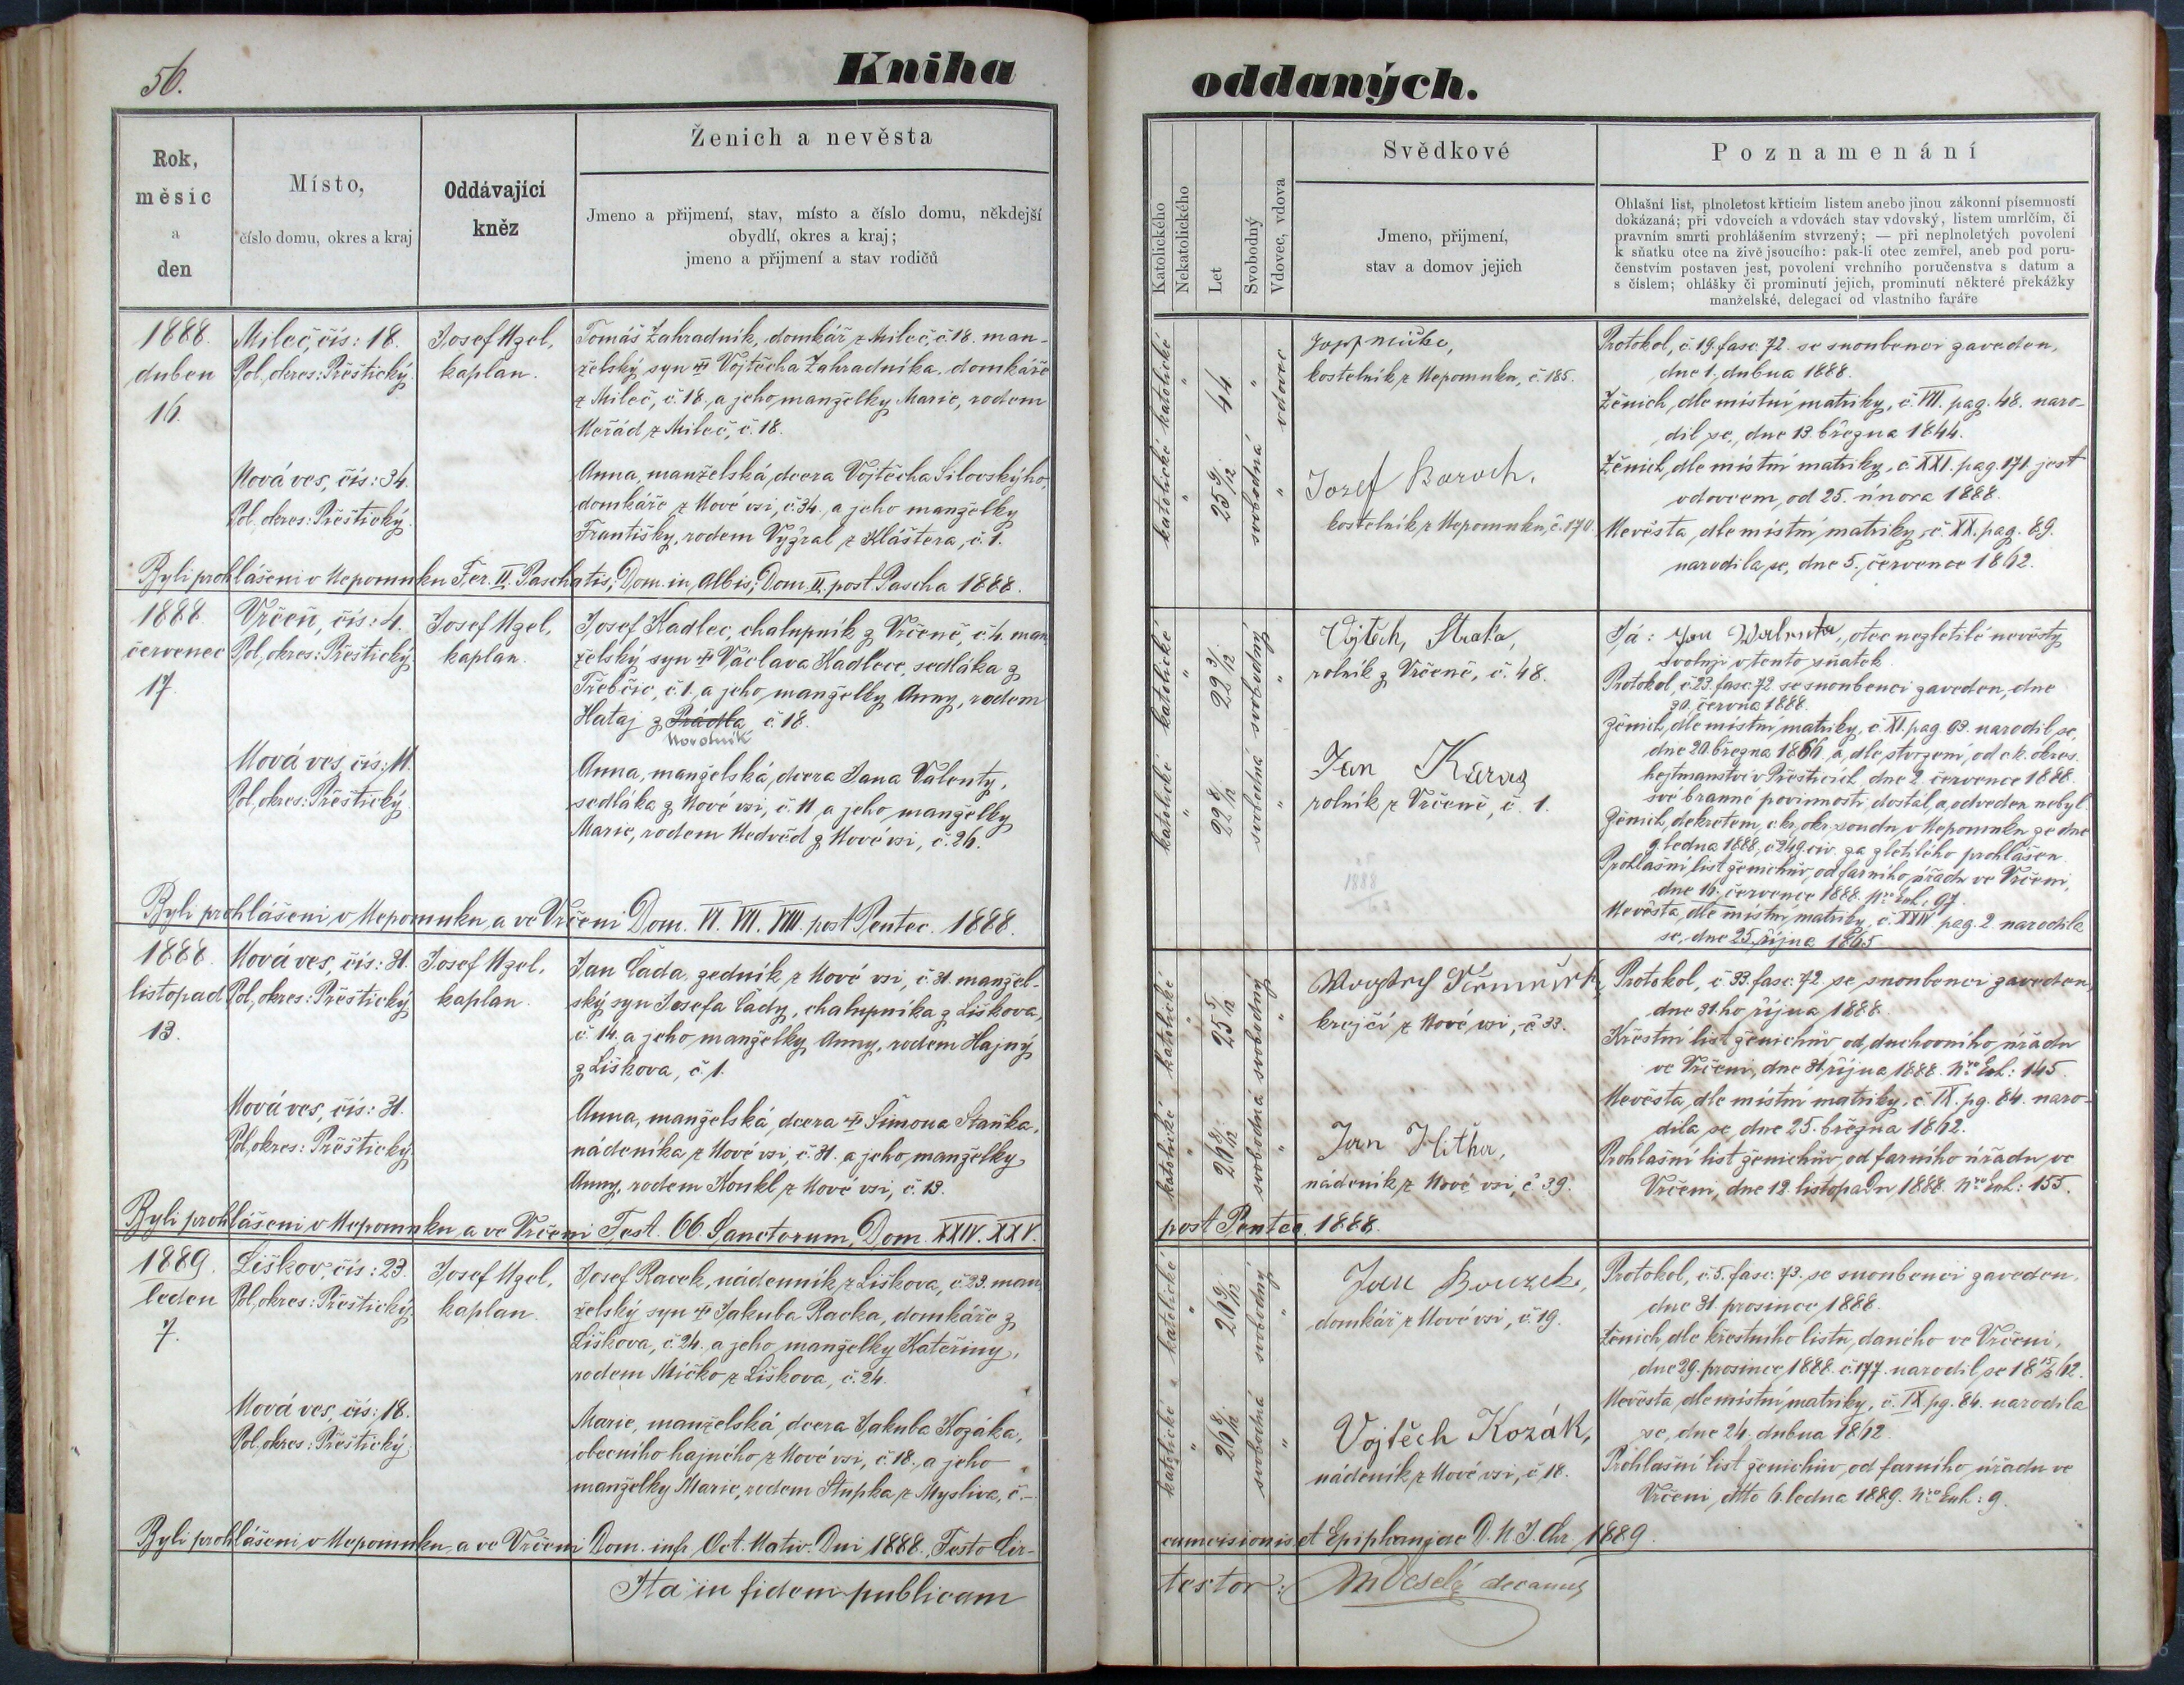 56.
Kniha oddaných.
Rok,
měsíc
a
den
Místo,
číslo domu, okres a kraj
Oddávající
kněz
Ženich a nevěsta
Jmeno a přijmení, stav, místo a číslo domu, někdejší
obydlí, okres a kraj;
jmeno a přijmení a stav rodičů
Katolického
Nekatolického
Let
Svobodný
Vdovec, vdova
Svědkové
Jmeno, přijmení,
stav a domov jejich
Poznamenání
Ohlašní list, plnoletost křticím listem anebo jinou zákonní písemností
dokázaná; při vdovcích a vdovách stav vdovský, listem umrlčím, či
pravním smrti prohlášením stvrzený; — při neplnoletých povolení
k sňatku otce na živě jsoucího: pak-li otec zemřel, aneb pod poru-
čenstvím postaven jest, povolení vrchního poručenstva s datum a
s číslem; ohlášky či prominutí jejich, prominutí některé překážky
manželské, delegací od vlastního faráře
1888.
duben
16.
Mileč, čís: 18.
Pol. okres: Přeštický.
Josef Uzel,
kaplan.
Tomáš Zahradník, domkář z Mileč, č. 18. man-
želský syn † Vojtěcha Zahradníka, domkáře
z Mileč, č. 18. a jeho manželky Marie, rodem
Neřád z Mileč, č. 18.
Nová ves, čís: 34.
Pol. okres: Přeštický.
Anna, manželská dcera Vojtěcha Silovskýho,
domkáře z Nové vsi, č. 34. a jeho manželky
Františky, rodem Vyžral z Kláštera, č. 1.
Byli prohlášeni v Nepomuku Fer. II. Paschatis; Dom. in Albis; Dom. II. post Pascha 1888.
katolické " 44 " vdovec
katolické " 25 9/12 svobodná "
kostelník z Nepomuka, č. 185.
Jozef Boroch,
kostelník z Nepomuku, č. 170.
Protokol, č. 19. fasc. 72. se snoubenci zaveden,
dne 1. dubna 1888.
Ženich, dle místní matriky, č. VII. pag. 48. naro-
dil se, dne 13. března 1844.
Ženich, dle místní matriky, č. XXI. pag. 171. jest
vdovcem, od 25. února 1888.
Nevěsta, dle místní matriky, č. XX. pag. 89.
narodila se, dne 5. července 1862.
1888.
červenec
17.
Vrčeň, čís: 4.
Pol. okres: Přeštický
Josef Uzel,
kaplan.
Josef Kadlec, chalupník z Vrčeně, č. 4. man-
želský syn † Václava Kadlece, sedláka z
Třebčic, č. 1. a jeho manželky Anny, rodem
Hataj z Prádla č. 18.
Novotník
Nová ves, čís: 11.
Pol. okres: Přeštický.
Anna, manželská dcera Jana Valenty,
sedláka z Nové vsi, č. 11. a jeho manželky
Marie, rodem Nedvěd z Nové vsi, č. 26.
Byli prohlášeni v Nepomuku a ve Vrčeni Dom. VI. VII. VIII. post Pentec. 1888.
katolické " 22 3/12 svobodný "
katolické " 22 8/12 svobodná "
Vojtěch, Straka,
rolník z Vrčeně, č. 48.
Jan Karas
rolník z Vrčeně, č. 1.
Já: Jan Walenta, otec nezletilé nevěsty
svoluji v tento sňatek.
Protokol, č. 23. fasc. 72. se snoubenci zaveden, dne
30. června 1888.
Ženich, dle místní matriky, č. XI. pag. 93. narodil se,
dne 20. března 1866. a dle stvrzení od c. k. okres.
hejtmanství v Přešticích, dne 2. července 1888.
své branné povinnosti dostál, a odveden nebyl.
Ženich, dekretem, c. kr. okr. soudu v Nepomuku ze dne
9. ledna 1888, č. 249. civ. za zletilého prohlášen.
Prohlašní list ženichův, od farního úřadu ve Vrčeni,
dne 16. července 1888. Nro Exh.: 97.
Nevěsta, dle místní matriky, č. XXIV. pag. 2. narodila
se, dne 25. října 1865
1888.
listopad
13.
Nová ves, čís: 31.
Pol. okres: Přeštický
Josef Uzel,
kaplan.
Jan Čada, zedník z Nové vsi, č. 31. manžel-
ský syn Josefa Čady, chalupníka z Liškova,
č. 14. a jeho manželky Anny, rodem Hajný
z Liškova, č. 1.
Nová ves, čís: 31.
Pol. okres: Přeštický
Anna, manželská dcera † Šimona Staňka,
nádeníka z Nové vsi, č. 31. a jeho manželky
Anny, rodem Koukl z Nové vsi, č. 13.
Byli prohlášeni v Nepomuku a ve Vrčeni Fest. OO. Sanctorum, Dom. XXIV. XXV.
post Pentec. 1888.
katolické " 25 5/12 svobodný "
katolické " 26 8/12 svobodná "
krejčí z Nové vsi, č. 33.
Jan Hitha,
nádeník z Nové vsi, č. 39.
Protokol, č. 33. fasc. 72. se snoubenci zaveden,
dne 31.ho října 1888.
Křestní list ženichův od duchovního úřadu
ve Vrčeni, dne 31. října 1888. Nro Exh.: 145.
Nevěsta, dle místní matriky, č. IX. pg. 84. naro-
dila se, dne 25. března 1862.
Prohlašní list ženichův, od farního úřadu ve
Vrčeni, dne 12. listopadu 1888. Nro Exh.: 155.
1889.
leden
7.
Liškov, čís: 23.
Pol. okres: Přeštický
Josef Uzel,
kaplan.
Josef Racek, nádenník z Liškova, č. 23. man-
želský syn † Jakuba Racka, domkáře z
Liškova, č. 24. a jeho manželky Kateřiny,
rodem Míčko z Liškova, č. 24.
Nová ves, čís: 18.
Pol. okres: Přeštický
Marie, manželská dcera Jakuba Kozáka,
obecního hajného z Nové vsi, č. 18., a jeho
manželky Marie, rodem Stupka z Mysliva, č. –.
Byli prohlášeni v Nepomuku a ve Vrčeni Dom. infr. Oct. Nativ. Dni 1888., Festo Cir-
cumcisionis et Epiphaniae D. N. J. Chr. 1889.
katolické " 26 9/12 svobodný "
katolické " 26 8/12 svobodná "
Jan Bouzek,
domkář z Nové vsi, č. 19.
Vojtěch Kozák,
nádeník z Nové vsi, č. 18.
Protokol, č. 5. fasc. 73. se snoubenci zaveden,
dne 31. prosince 1888.
Ženich, dle křestního listu, daného ve Vrčeni,
dne 29. prosince 1888. č. 177. narodil se 18 15/3 62.
Nevěsta, dle místní matriky, č. IX. pg. 84. narodila
se, dne 24. dubna 1862.
Prohlašní list ženichův, od farního úřadu ve
Vrčeni, dtto 6. ledna 1889. Nro Exh.: 9.
Ita in fidem publicam
testor: M Veselý decanus